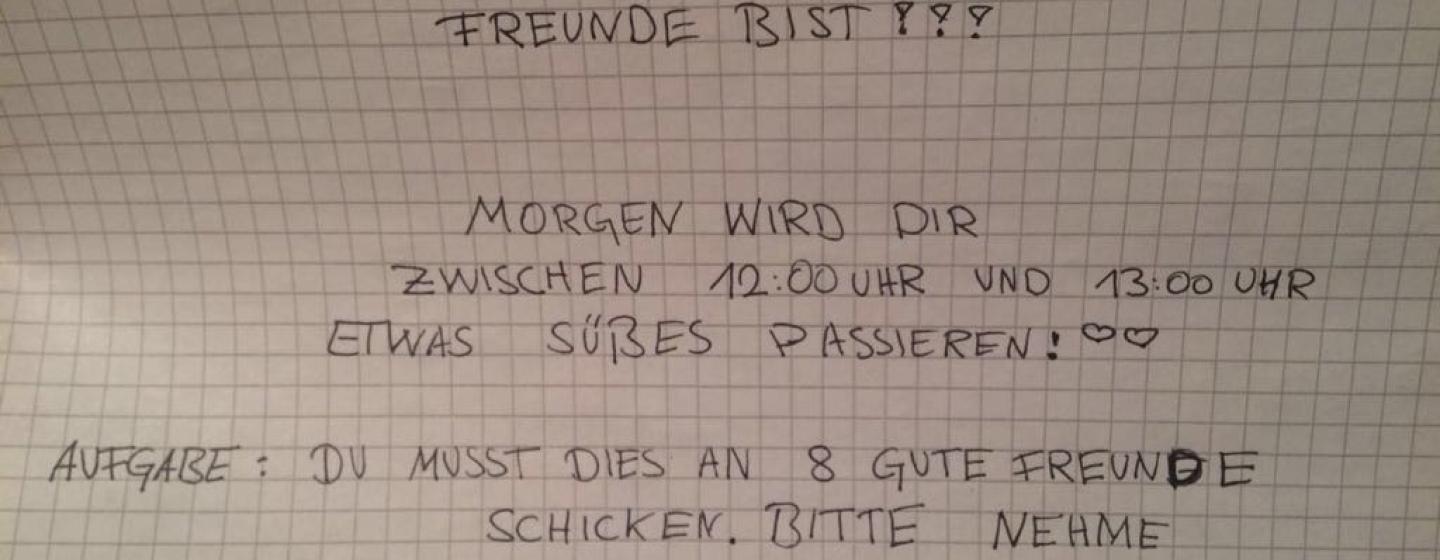 FREUNDE BIST ???
MORGEN WIRD DIR
ZWISCHEN 12:00 UHR UND 13:00 UHR
ETWAS SÜßES PASSIEREN! ♡♡
AUFGABE: DU MUSST DIES AN 8 GUTE FREUNDE
SCHICKEN. BITTE NEHME